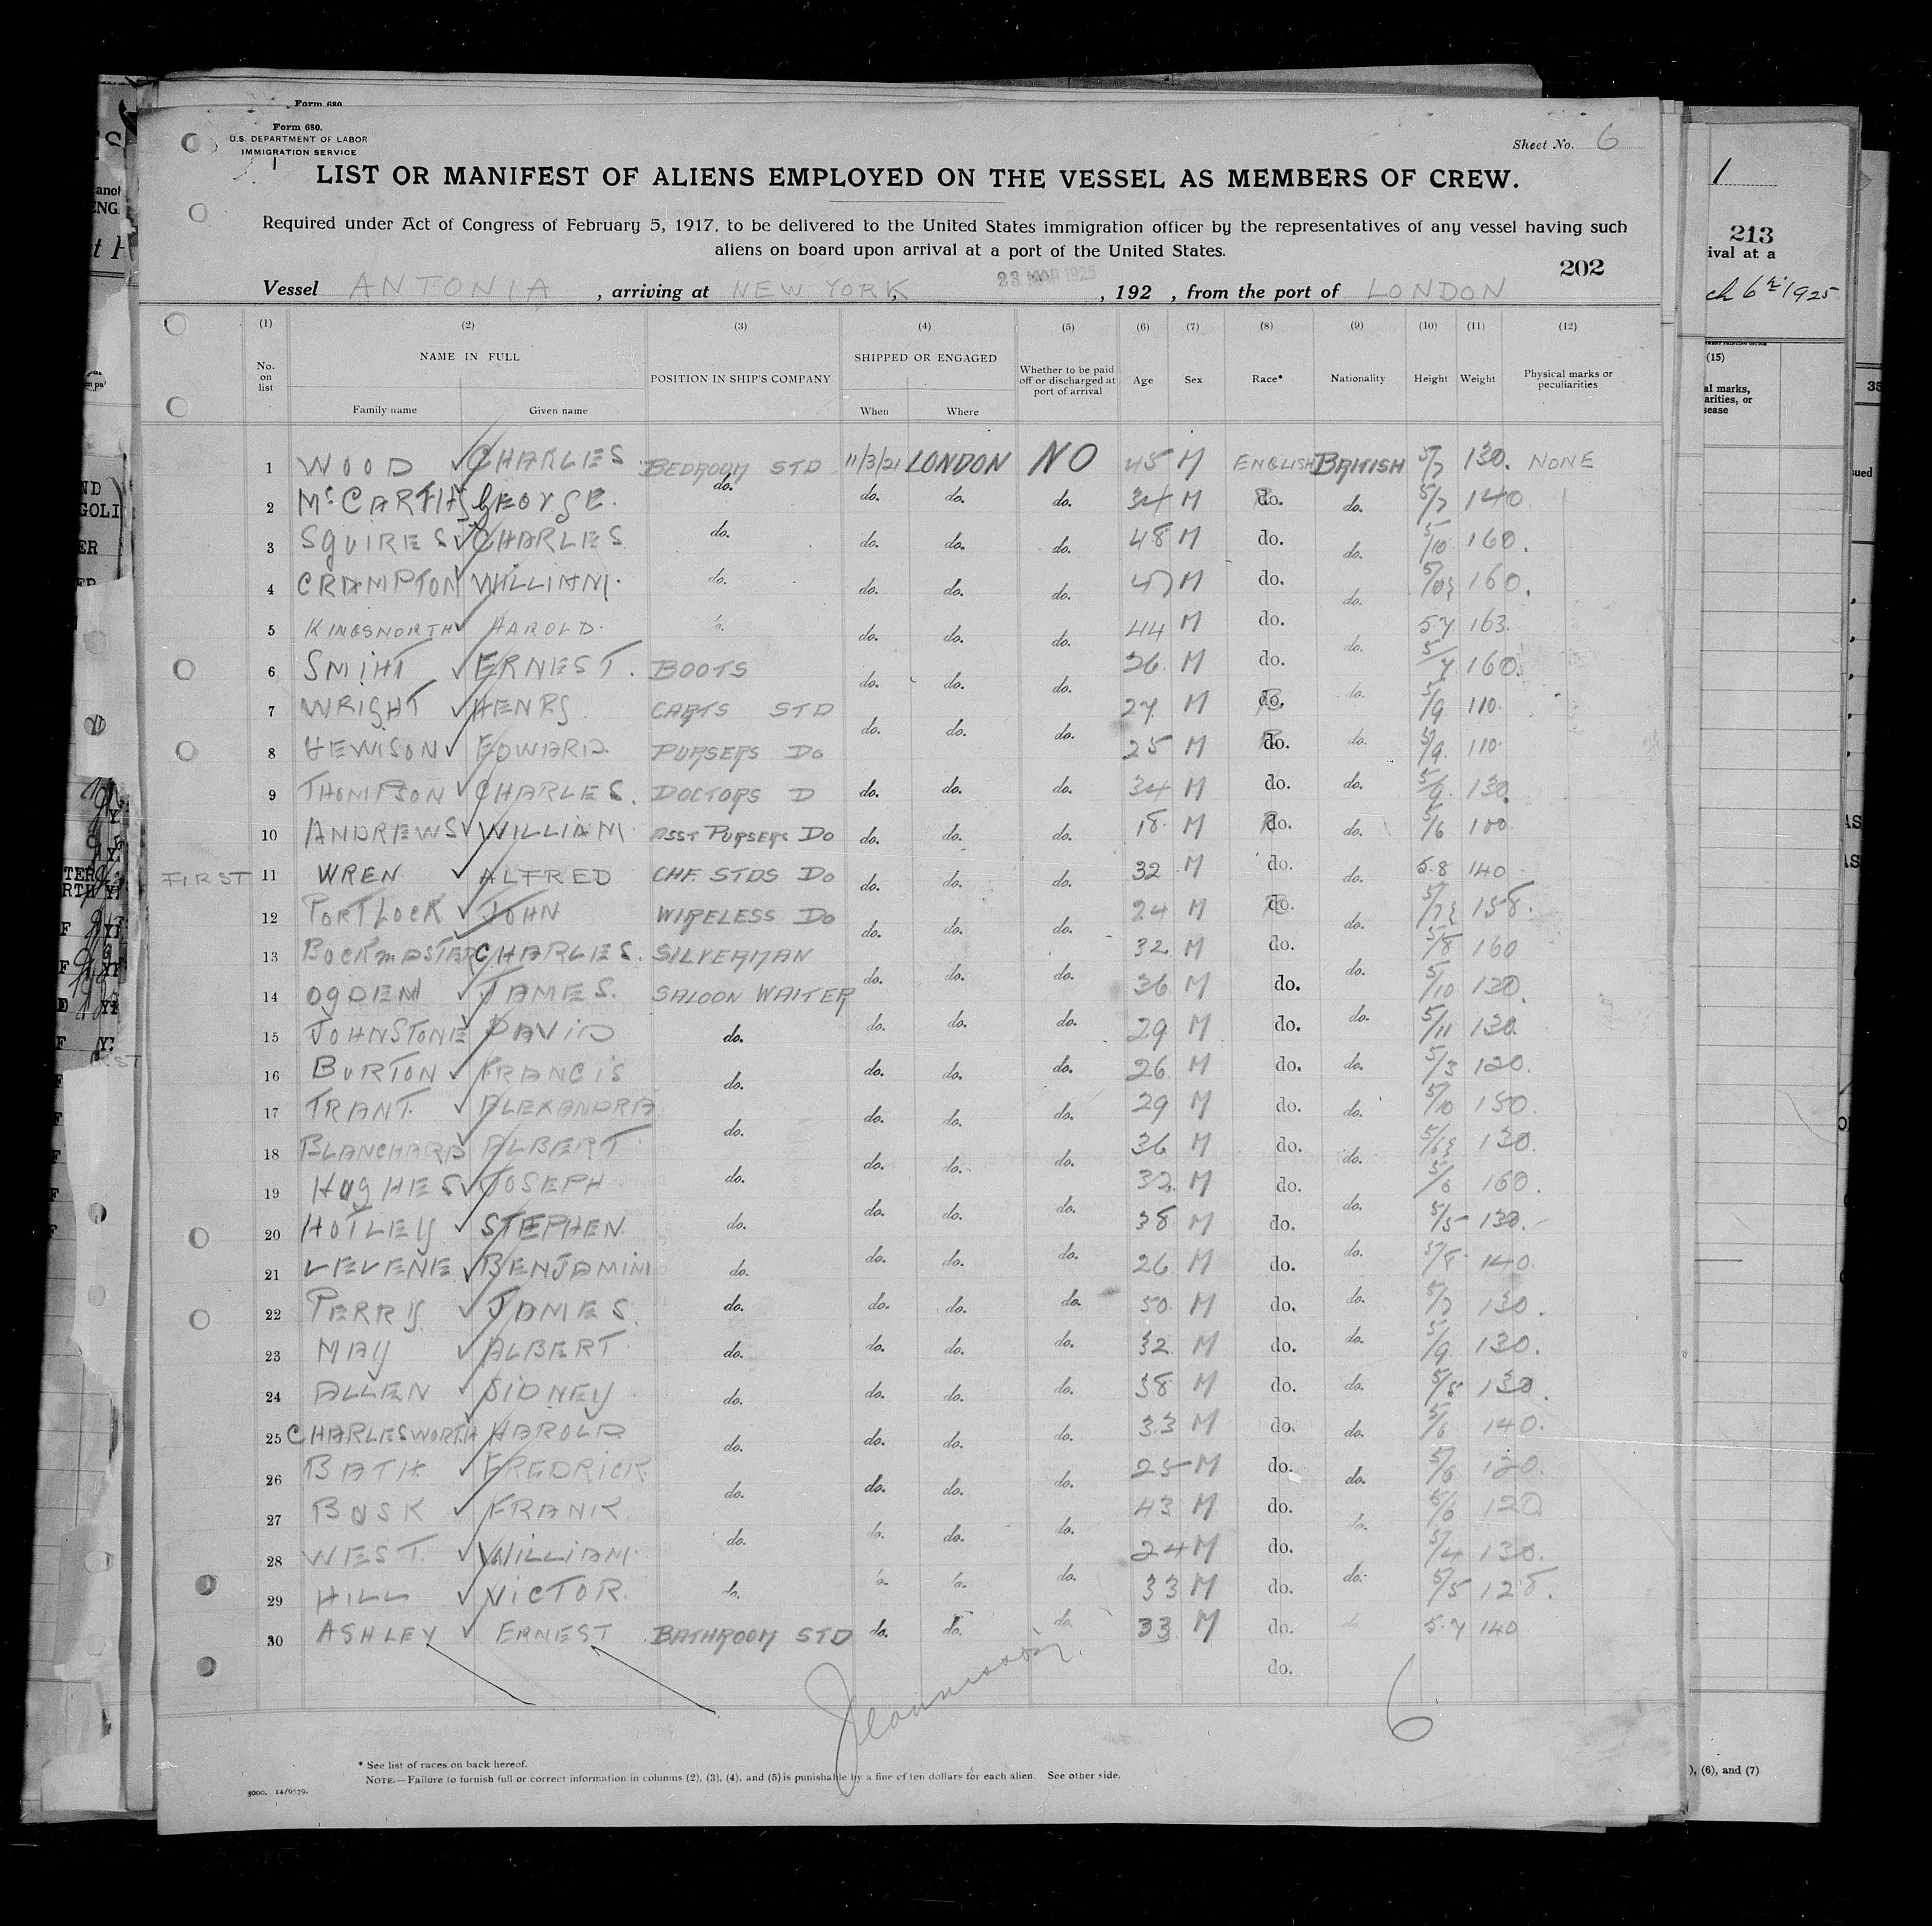 Form 680.
Form 680.
U.S. DEPARTMENT OF LABOR
IMMIGRATION SERVICE
Sheet No. 6
LIST OR MANIFEST OF ALIENS EMPLOYED ON THE VESSEL AS MEMBERS OF CREW.
Required under Act of Congress of February 5, 1917, to be delivered to the United States immigration officer by the representatives of any vessel having such
aliens on board upon arrival at a port of the United States.
202
Vessel ANTONIA, arriving at NEW YORK, 23 MAR 1925, 192 , from the port of LONDON
(1) (2) (3) (4) (5) (6) (7) (8) (9) (10) (11) (12)
No. on list NAME IN FULL Family name Given name POSITION IN SHIP'S COMPANY SHIPPED OR ENGAGED When Where Whether to be paid off or discharged at port of arrival Age Sex Race* Nationality Height Weight Physical marks or peculiarities
1 WOOD CHARLES BEDROOM STD 11/3/21 LONDON NO 45 M ENGLISH BRITISH 5/7 130. NONE
2 McCARTHY GEORGE. do. do. do. do. 34 M do. do. 5/7 140
3 SQUIRES CHARLES do. do. do. do. 48 M do. do. 5/10 160.
4 CRAMPTON WILLIAM. do. do. do. do. 47 M do. do. 160.
5 KINGSNORTH HAROLD. do. do. do. 44 M do. do. 5.7 163.
6 SMIHT ERNEST. BOOTS do. do. do. 26. M do. do. 5/7 160.
7 WRIGHT HENRY. CAPTS STD do. do. do. 27. M do. do. 5/9 110.
8 HEWISON EDWARD. PURSERS DO do. do. do. 25 M do. do. 5/9. 110.
9 THOMPSON CHARLES. DOCTORS D do. do. do. 34 M do. do. 5/9. 130.
10 ANDREWS WILLIAM ASST PURSERS DO do. do. do. 18. M do. do. 5/6 100
FIRST 11 WREN ALFRED CHF. STDS DO do. do. do. 32 M do. do. 5.8 140
12 PORTLOCK JOHN WIRELESS DO do. do. do. 24 M do. do. 158.
13 BOCKMASTER CHARLES. SILVERMAN do. do. do. 32 M do. do. 5/8 160
14 OGDEN JAMES. SALOON WAITER do. do. do. 36 M do. do. 5/10 130.
15 JOHNSTONE DAVID do. do. do. do. 29 M do. do. 5/11 130.
16 BURTON FRANCIS do. do. do. do. 26. M do. do. 5/3 120.
17 TRANT. ALEXANDRA do. do. do. do. 29 M do. do. 5/10 150.
18 BLANCHARD ALBERT do. do. do. do. 36 M do. do. 130.
19 HUGHES JOSEPH do. do. do. do. 32. M do. do. 5/6 160.
20 HOTLEY STEPHEN. do. do. do. do. 38 M do. do. 5/5 130.
21 LEVENE BENJAMIN do. do. do. do. 26 M do. do. 5/8 140.
22 PERRY JAMES. do. do. do. do. 50. M do. do. 5/7 130.
23 MAY ALBERT. do. do. do. do. 32 M do. do. 5/9. 130.
24 ALLEN SIDNEY do. do. do. do. 38 M do. do. 5/5 130.
25 CHARLESWORTH HAROLD do. do. do. do. 33 M do. do. 5/6 140.
26 BATH FREDRICK. do. do. do. do. 25 M do. do. 5/6 120.
27 BUSK FRANK. do. do. do. do. 43 M do. do. 5/6 120.
28 WEST. WILLIAM. do. do. do. do. 24 M do. do. 5/4 130.
29 HILL VICTOR. do. do. do. do. 33 M do. do. 5/5 128.
30 ASHLEY ERNEST BATHROOM STD do. do. do. 33 M do. do. 5.7 140
do.
6
* See list of races on back hereof.
NOTE.—Failure to furnish full or correct information in columns (2), (3), (4), and (5) is punishable by a fine of ten dollars for each alien. See other side.
5000. 14/6579.
1
213
ival at a
ch 6th 1925
(15)
al marks,
arities, or
sease
), (6), and (7)
35
sued